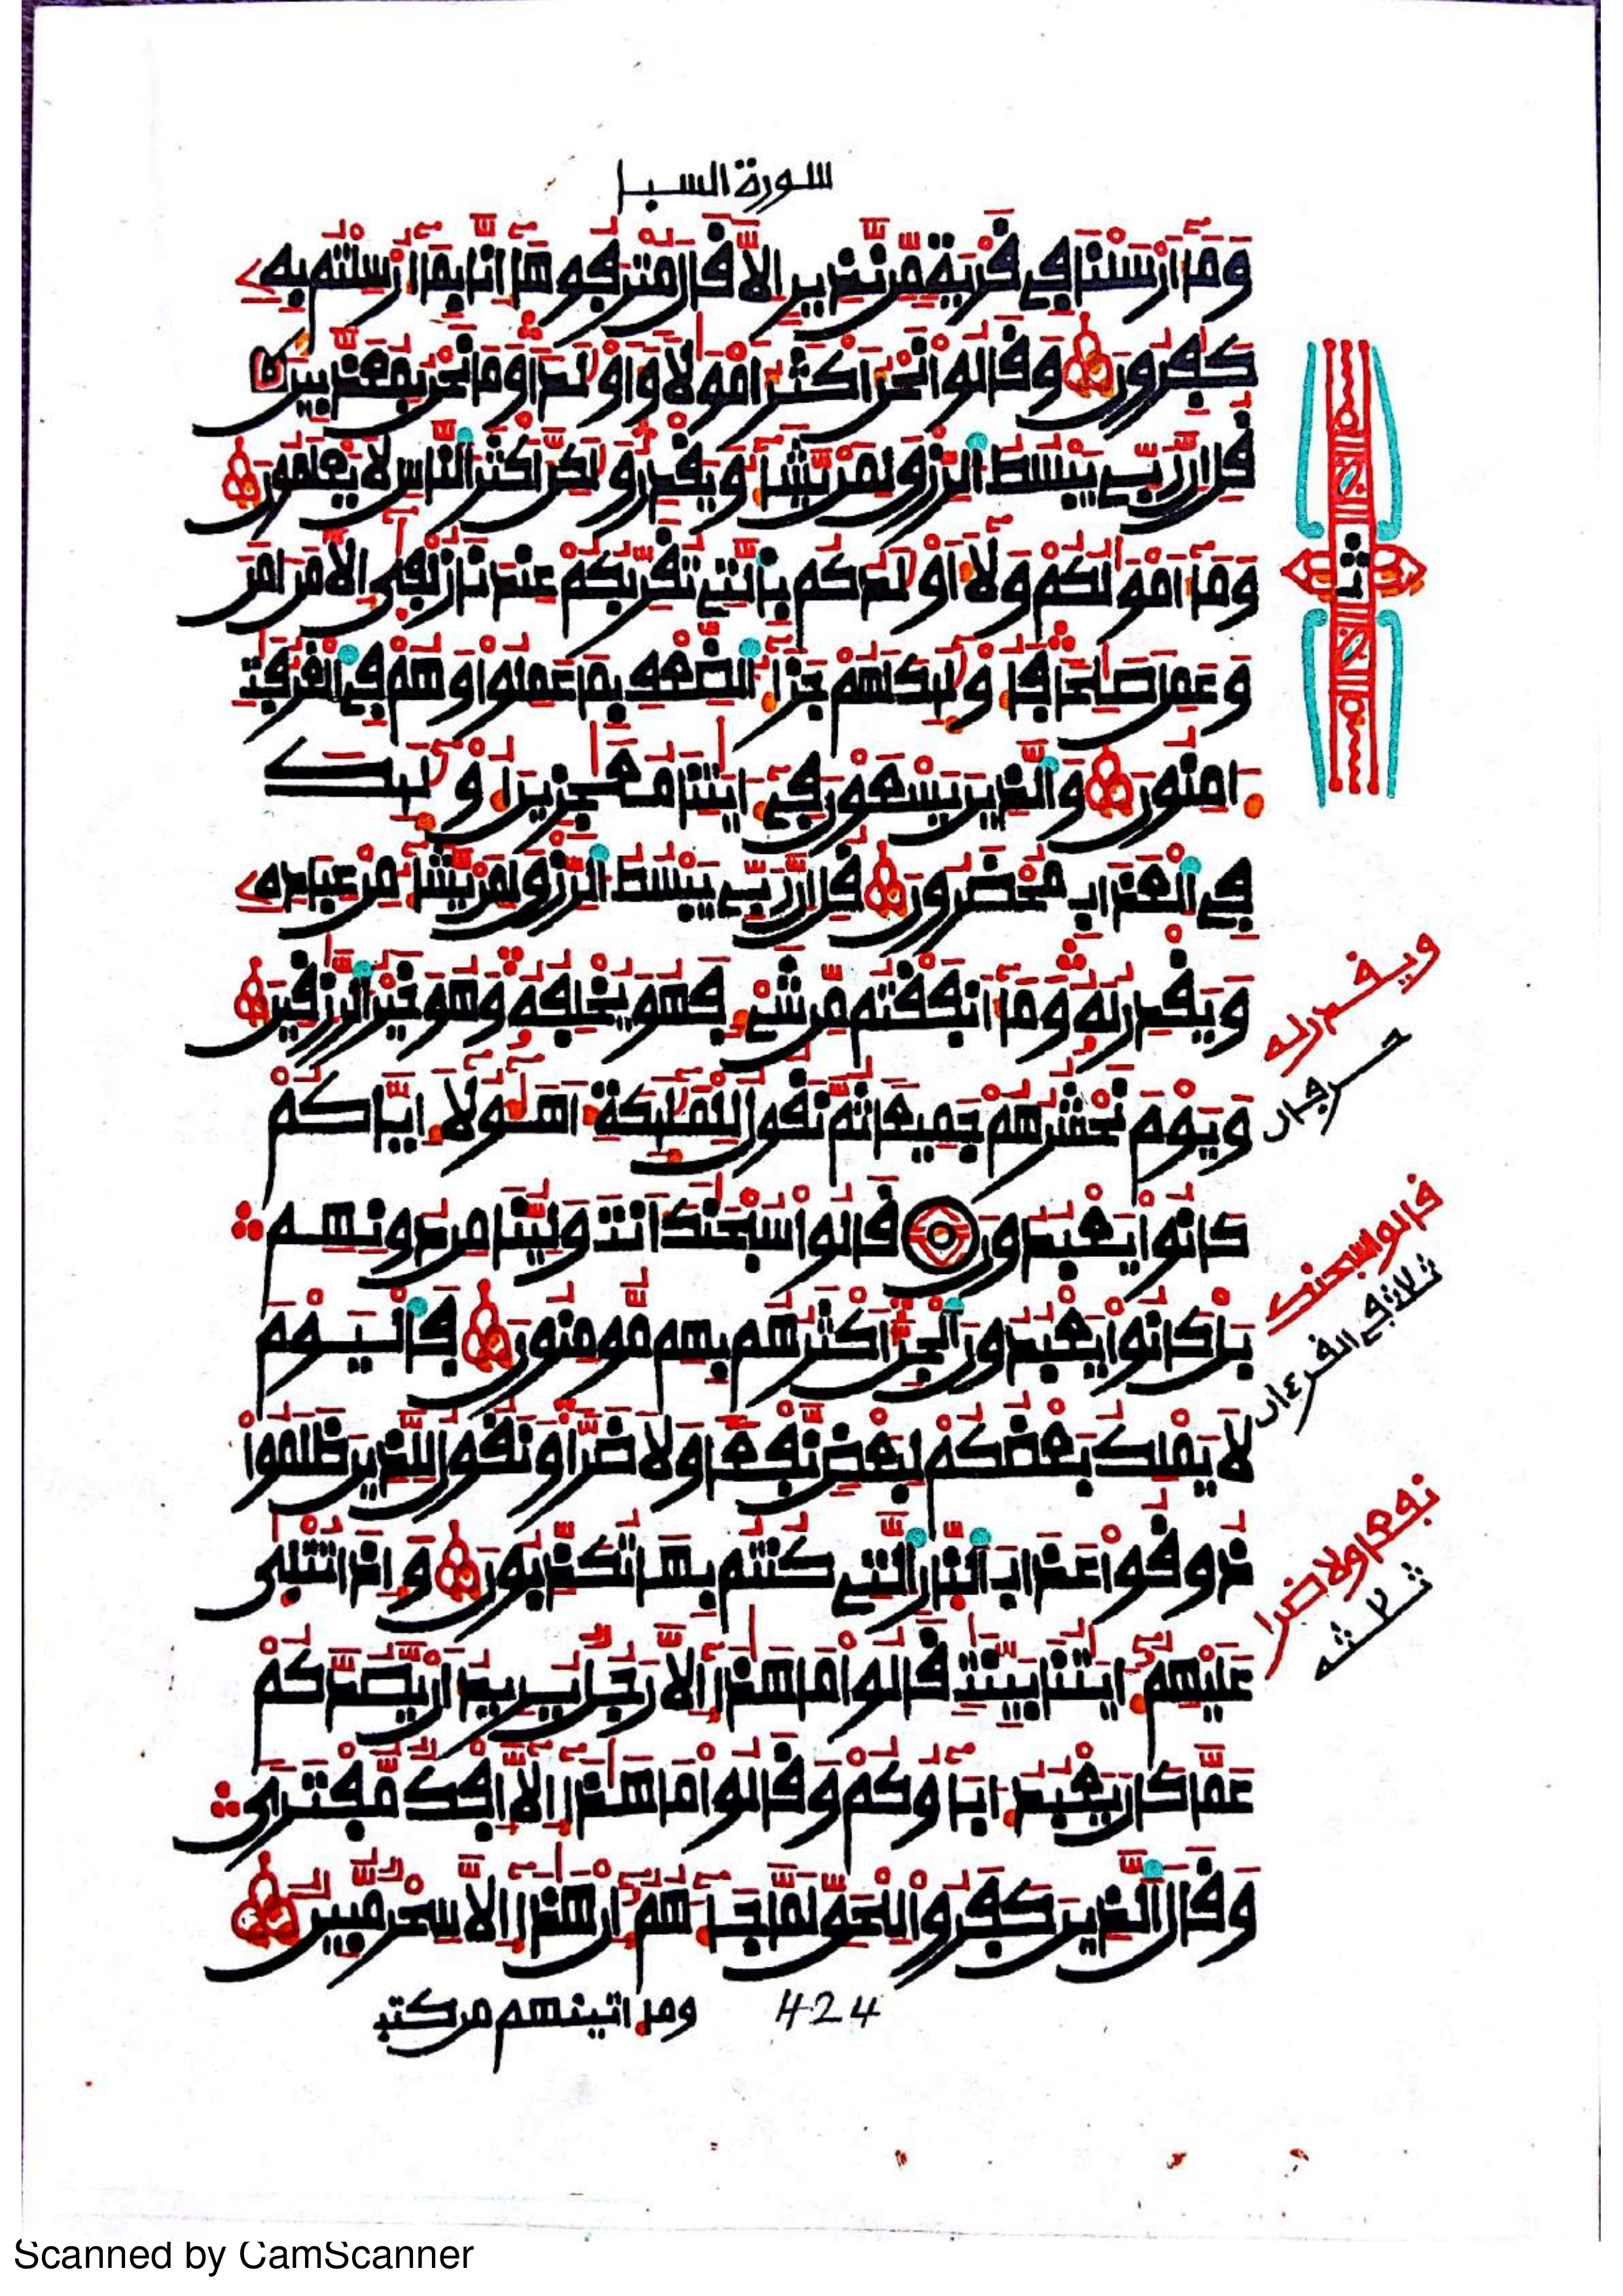 سورة السبإ
وَمَآ أَرْسَلْنَا فِي قَرْيَةٍ مِّن نَّذِيرٍ إِلَّا قَالَ مُتْرَفُوهَآ إِنَّا بِمَآ أُرْسِلْتُم بِهِۦ
كَٰفِرُونَ وَقَالُوا نَحْنُ أَكْثَرُ أَمْوَٰلًا وَأَوْلَٰدًا وَمَا نَحْنُ بِمُعَذَّبِينَ
قُلْ إِنَّ رَبِّي يَبْسُطُ الرِّزْقَ لِمَنْ يَّشَآءُ وَيَقْدِرُ وَلَٰكِنَّ أَكْثَرَ النَّاسِ لَا يَعْلَمُونَ
وَمَآ أَمْوَٰلُكُمْ وَلَآ أَوْلَٰدُكُم بِالَّتِي تُقَرِّبُكُمْ عِندَنَا زُلْفَىٰٓ إِلَّا مَنْ ءَامَنَ
وَعَمِلَ صَٰلِحًا فَأُوْلَٰٓئِكَ لَهُمْ جَزَآءُ الضِّعْفِ بِمَا عَمِلُوا وَهُمْ فِي الْغُرُفَٰتِ
ءَامِنُونَ وَالَّذِينَ يَسْعَوْنَ فِيٓ ءَايَٰتِنَا مُعَٰجِزِينَ أُوْلَٰٓئِكَ
فِي الْعَذَابِ مُحْضَرُونَ قُلْ إِنَّ رَبِّي يَبْسُطُ الرِّزْقَ لِمَنْ يَّشَآءُ مِنْ عِبَادِهِۦ
وَيَقْدِرُ لَهُۥ وَمَآ أَنفَقْتُم مِّن شَيْءٍ فَهُوَ يُخْلِفُهُۥ وَهُوَ خَيْرُ الرَّٰزِقِينَ
وَيَوْمَ نَحْشُرُهُمْ جَمِيعًا ثُمَّ نَقُولُ لِلْمَلَٰٓئِكَةِ أَهَٰٓؤُلَآءِ إِيَّاكُمْ
كَانُوا يَعْبُدُونَ قَالُوا سُبْحَٰنَكَ أَنتَ وَلِيُّنَا مِن دُونِهِم
بَلْ كَانُوا يَعْبُدُونَ الْجِنَّ أَكْثَرُهُم بِهِم مُّومِنُونَ فَالْيَوْمَ
لَا يَمْلِكُ بَعْضُكُمْ لِبَعْضٍ نَّفْعًا وَلَا ضَرًّا وَنَقُولُ لِلَّذِينَ ظَلَمُوا
ذُوقُوا عَذَابَ النَّارِ الَّتِي كُنتُم بِهَا تُكَذِّبُونَ وَإِذَا تُتْلَىٰ
عَلَيْهِمُ ءَايَٰتُنَا بَيِّنَٰتٍ قَالُوا مَا هَٰذَآ إِلَّا رَجُلٌ يُرِيدُ أَنْ يَّصُدَّكُمْ
عَمَّا كَانَ يَعْبُدُ ءَابَآؤُكُمْ وَقَالُوا مَا هَٰذَآ إِلَّآ إِفْكٌ مُّفْتَرًى
وَقَالَ الَّذِينَ كَفَرُوا لِلْحَقِّ لَمَّا جَآءَهُمُ إِنْ هَٰذَآ إِلَّا سِحْرٌ مُّبِينٌ
ث
ويقدر له
حرجان
قالوا سبحنك
ثلاث في القرءان
نفعا ولا ضرا
ثلثه
424
وما اتينهم من كتب
Scanned by CamScanner